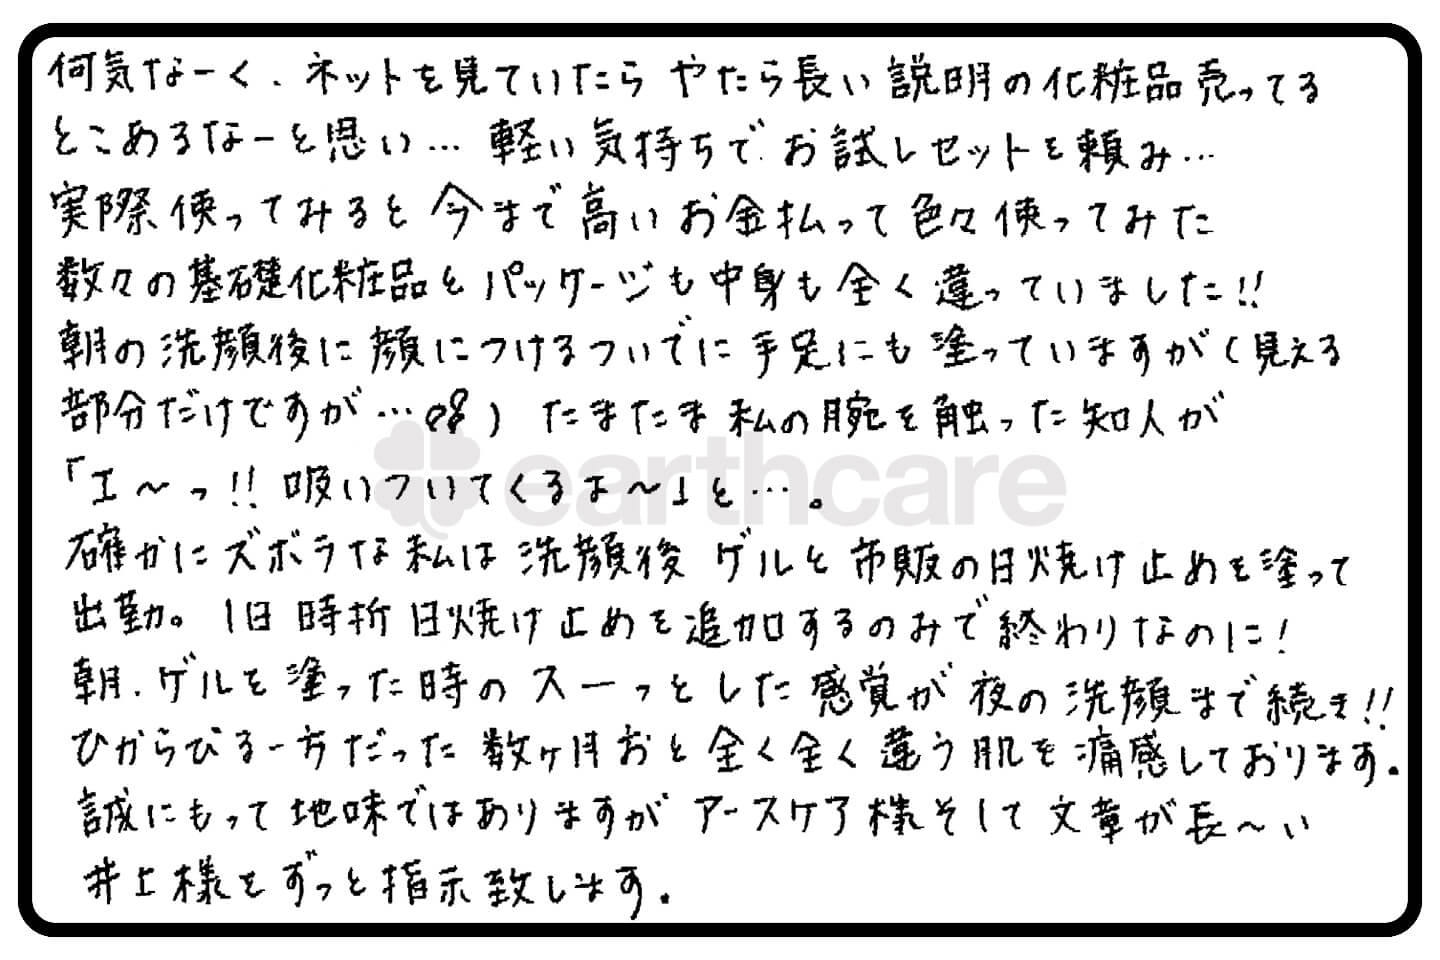 何気なーく、ネットを見ていたら やたら長い 説明の化粧品売ってる
とこあるなーと思い… 軽い気持ちで、お試しセットを頼み…
実際使ってみると 今まで高いお金払って色々使ってみた
数々の基礎化粧品とパッケージも中身も全く違っていました!!
朝の洗顔後に顔につけるついでに手足にも塗っていますが(見える
部分だけですが…) たまたま私の腕を触った知人が
「エ〜っ!!吸いついてくるよ〜」と…。
earthcare
確かにズボラな私は洗顔後 ゲルと市販の日焼け止めを塗って
出勤。1日時折日焼け止めを追加するのみで終わりなのに!
朝、ゲルを塗った時のスーっとした感覚が夜の洗顔まで続き!!
ひからびる一方だった数ヶ月前と全く全く違う肌を痛感しております。
誠にもって地味ではありますがアースケア様そして文章が長〜い
井上様をずっと指示致します。